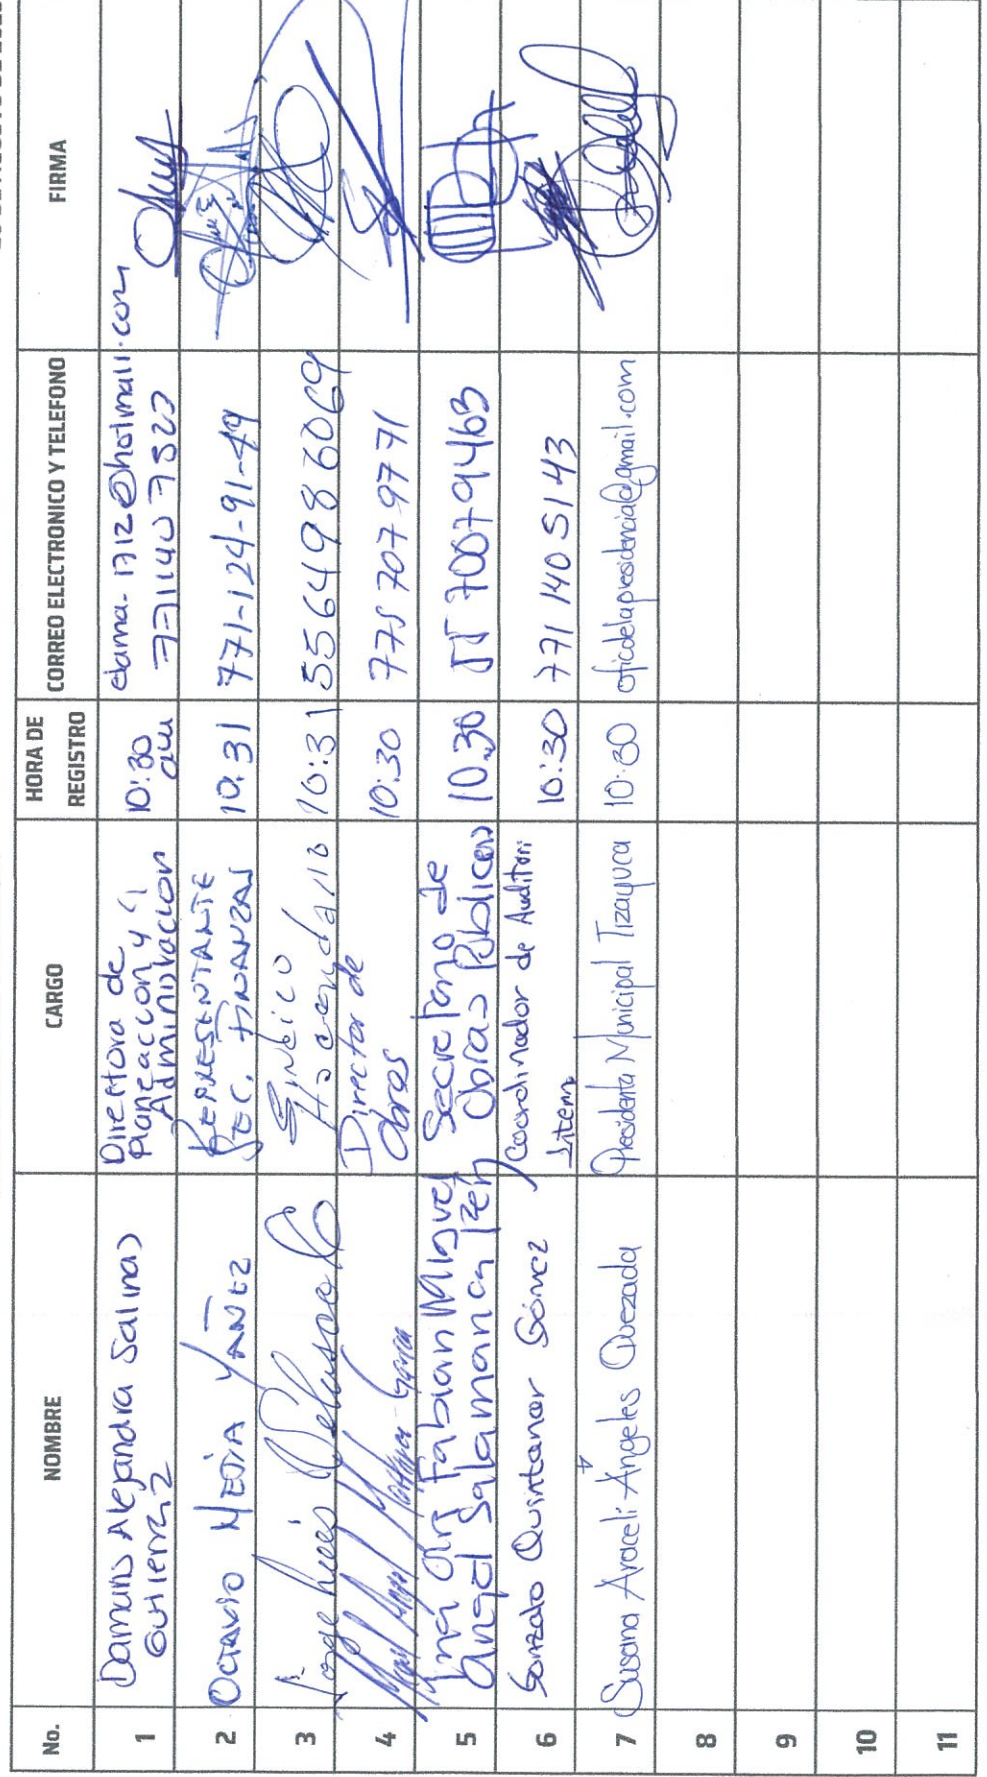 No.
NOMBRE
CARGO
HORA DE
REGISTRO
CORREO ELECTRONICO Y TELEFONO
FIRMA
1
Damaris Alejandra Salinas
Gutierrez
Directora de
Planeaccion y
Administracion
10:30
am
dama-1712@hotmail.com
7711407323
2
OCTAVIO MEJIA YAÑEZ
REPRESENTANTE
SEC. FINANZAS
10:31
771-124-91-49
3
Jorge Luis
Sindico
Hacendario
10:31
5564986069
4
Director de
Obras
10:30
775 707 9771
5
Fabian Miguel
Angel Salamanca
Secretario de
Obras Publicas
10:30
55 70079463
6
Gonzalo Quintanar Gómez
Coordinador de Auditori
Intern
10:30
771 140 5143
7
Susana Araceli Ángeles Quezada
Presidenta Municipal Tizayuca
10:30
oficdelapresidencia@gmail.com
8
9
10
11